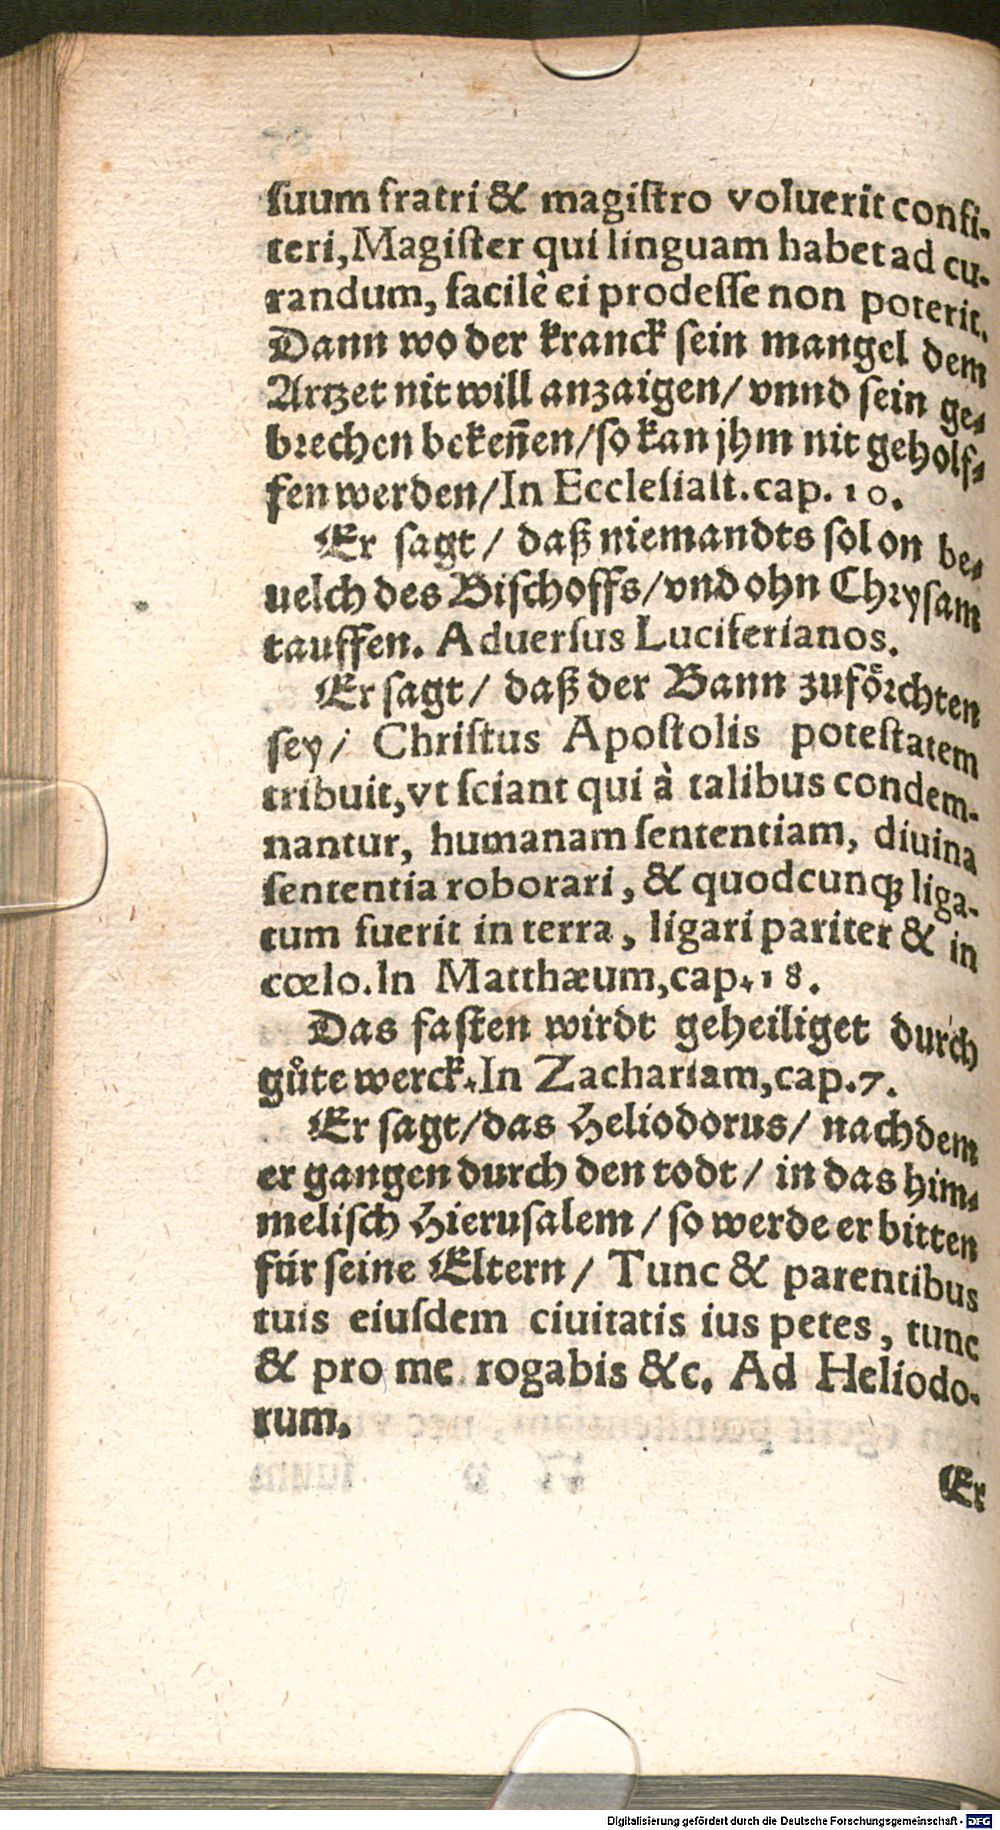 suum fratri & magistro voluerit confi-
teri, Magister qui linguam habet ad cu-
randum, facilè ei prodesse non poterit.
Dann wo der kranck sein mangel dem
Artzet nit will anzaigen/ vnnd sein ge-
brechen bekeñen/so kan jhm nit geholf-
fen werden/In Ecclesiast.cap.10.
Er sagt/ daß niemandts sol on be-
uelch des Bischoffs/vnd ohn Chrysam
tauffen. Aduersus Luciferianos.
Er sagt/ daß der Bann zufoͤrchten
sey/ Christus Apostolis potestatem
tribuit,vt sciant qui à talibus condem-
nantur, humanam sententiam, diuina
sententia roborari, & quodcunq́; liga-
tum fuerit in terra, ligari pariter & in
cœlo.In Matthæum,cap.18.
Das fasten wirdt geheiliget durch
gůte werck.In Zachariam,cap.7.
Er sagt/das Heliodorus/ nachdem
er gangen durch den todt/ in das him-
melisch Hierusalem/so werde er bitten
für seine Eltern/ Tunc & parentibus
tuis eiusdem ciuitatis ius petes, tunc
& pro me rogabis &c. Ad Heliodo-
rum.
Er
Digitalisierung gefördert durch die Deutsche Forschungsgemeinschaft - DFG